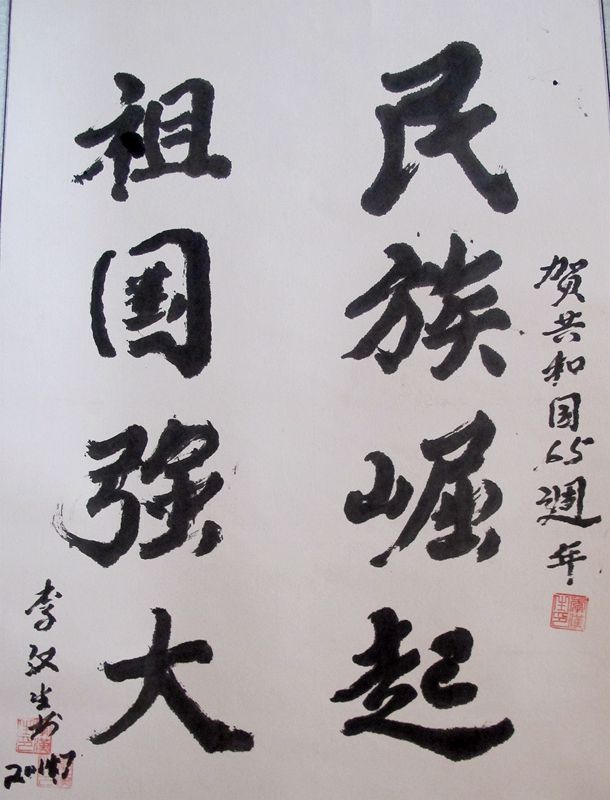 贺共和国65週年
民族崛起
祖国强大
李汉生书